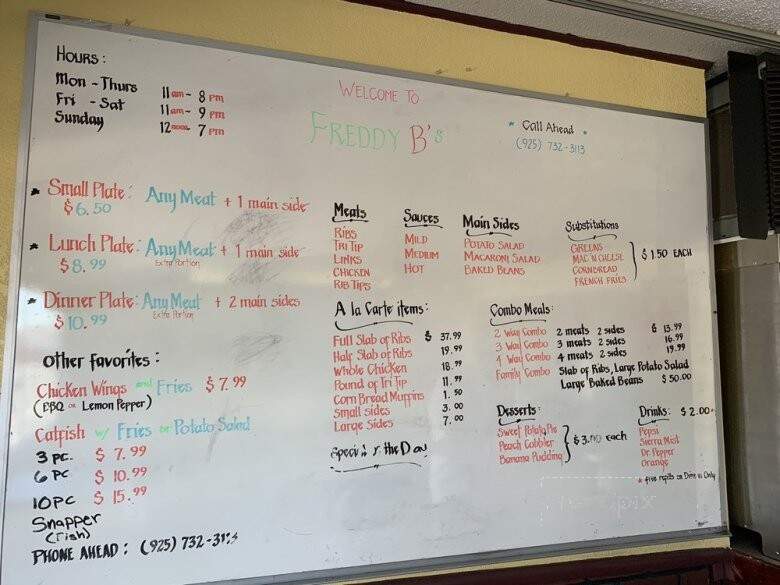 Hours:
Mon - Thurs 11am - 8 pm
Fri - Sat 11am - 9 pm
Sunday 12noon 7 pm
Welcome to
Freddy B's
* Call Ahead *
(925) 732-3113
* Small Plate: Any Meat + 1 main side
$6.50
* Lunch Plate: Any Meat + 1 main side
Extra Portion
$8.99
* Dinner Plate: Any Meat + 2 main sides
Extra Portion
$10.99
Other favorites:
Chicken Wings and Fries $7.99
(BBQ or Lemon Pepper)
Catfish w/ Fries or Potato Salad
3 pc. $7.99
6 pc $10.99
10 pc $15.99
Snapper
(Fish)
Phone Ahead: (925) 732-3113
Meats
Ribs
Tri Tip
Links
Chicken
Rib Tips
Sauces
Mild
Medium
Hot
Main Sides
Potato Salad
Macaroni Salad
Baked Beans
Substitutions
Greens
Mac n Cheese
Cornbread
French Fries
$1.50 each
A la Carte items:
Full Slab of Ribs $ 37.99
Half Slab of Ribs 19.99
Whole Chicken 18.99
Pound of Tri Tip 11.99
Corn Bread Muffins 1.50
Small sides 3.00
Large Sides 7.00
Speci l f the Day
Combo Meals:
2 Way Combo 2 meats 2 sides $ 13.99
3 Way Combo 3 meats 2 sides 16.99
4 Way Combo 4 meats 2 sides 19.99
Family Combo Slab of Ribs, Large Potato Salad
Large Baked Beans $50.00
Desserts:
Sweet Potato Pie
Peach Cobbler
Banana Pudding
$3.00 each
Drinks: $2.00
Pepsi
Sierra Mist
Dr. Pepper
Orange
* free refills on Dine in Only